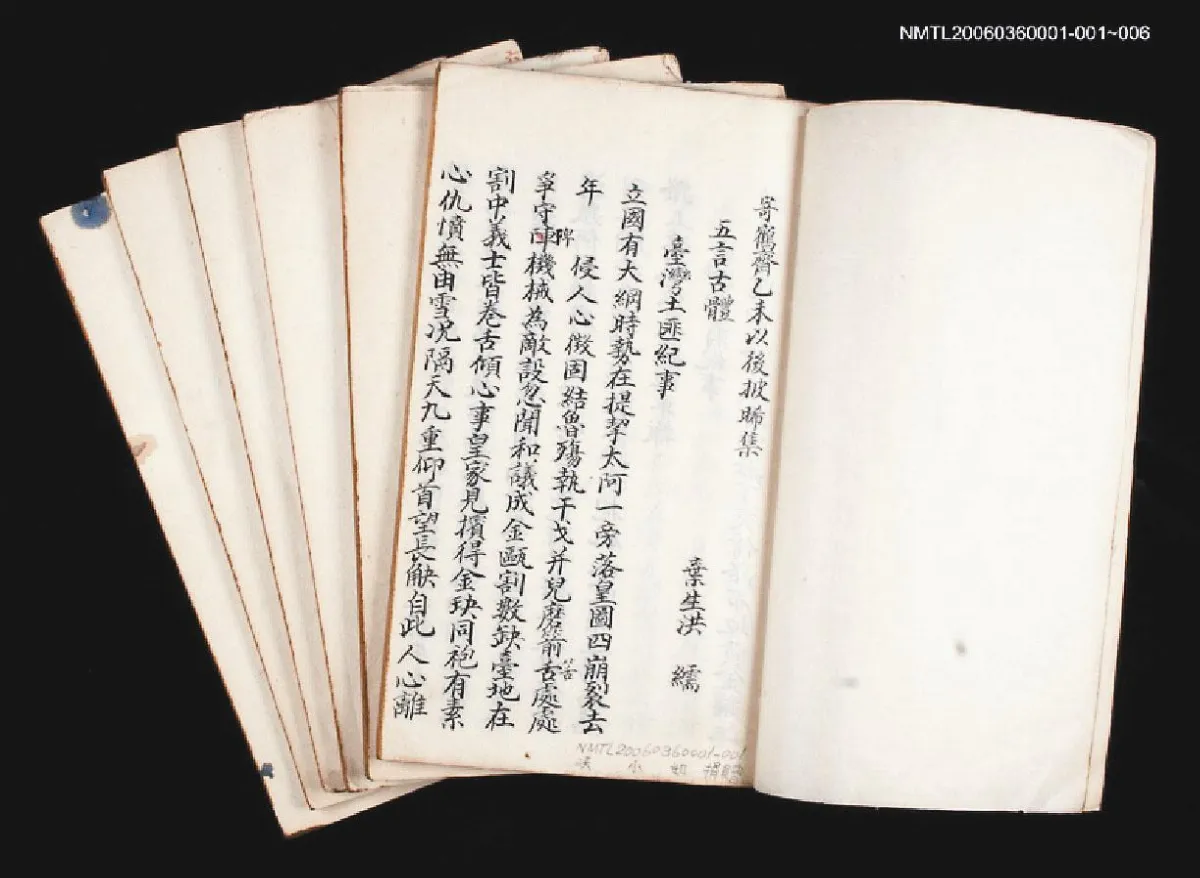 NMTL20060360001-001~006
寄鶴齋乙未以後披晞集
五言古體 葉生洪 繻
臺灣土匪紀事
立國有大綱時勢在提挈太阿一旁落皇圖四崩裂去
年 侵人心徵固結魯殤執干戈并兒磨箭舌處處
笴
爭守陣機械為敵設忽聞和議成金甌割數缺臺地在
陴
割中義士皆卷舌傾心事皇家見擯得金玦同袍有素
心仇憤無由雪况隔天九重仰首望長觖自此人心離
NMTL20060360001-001
小 捐贈